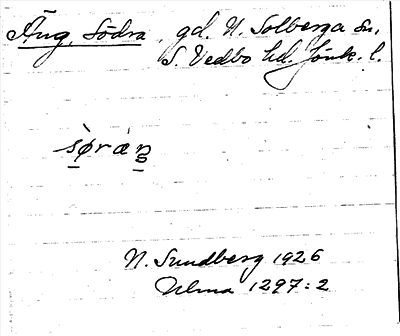 Äng, Södra, gd. N. Solberga sn,
S. Vedbo hd. Jönk. l.
sø̀ræn
N. Sundberg 1926
Ulma 1297:2